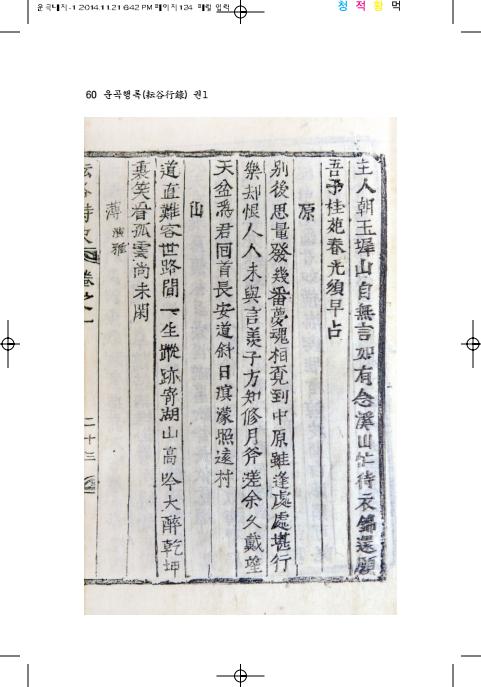 운곡대지-1 2014.11.21 6:42 PM 페이지124 매립 입력
청 적 황 먹
60 운곡행록(耘谷行錄) 권1
主人朝玉墀山自無言如有念溪山岦待衣錦還願
吾子桂苑春光須早占
原
別後思量發幾番夢魂相逐到中原雖逢處處堪行
樂却恨人人未與言羨子方知修月斧嗟余久戴望
天盆爲君回首長安道斜日溟濛照遠村
山
道直難容世路間一生蹤跡寄湖山高吟大醉乾坤
裏笑看孤雲尚未閑
薄演雅
耘谷詩史 卷之一 二十三